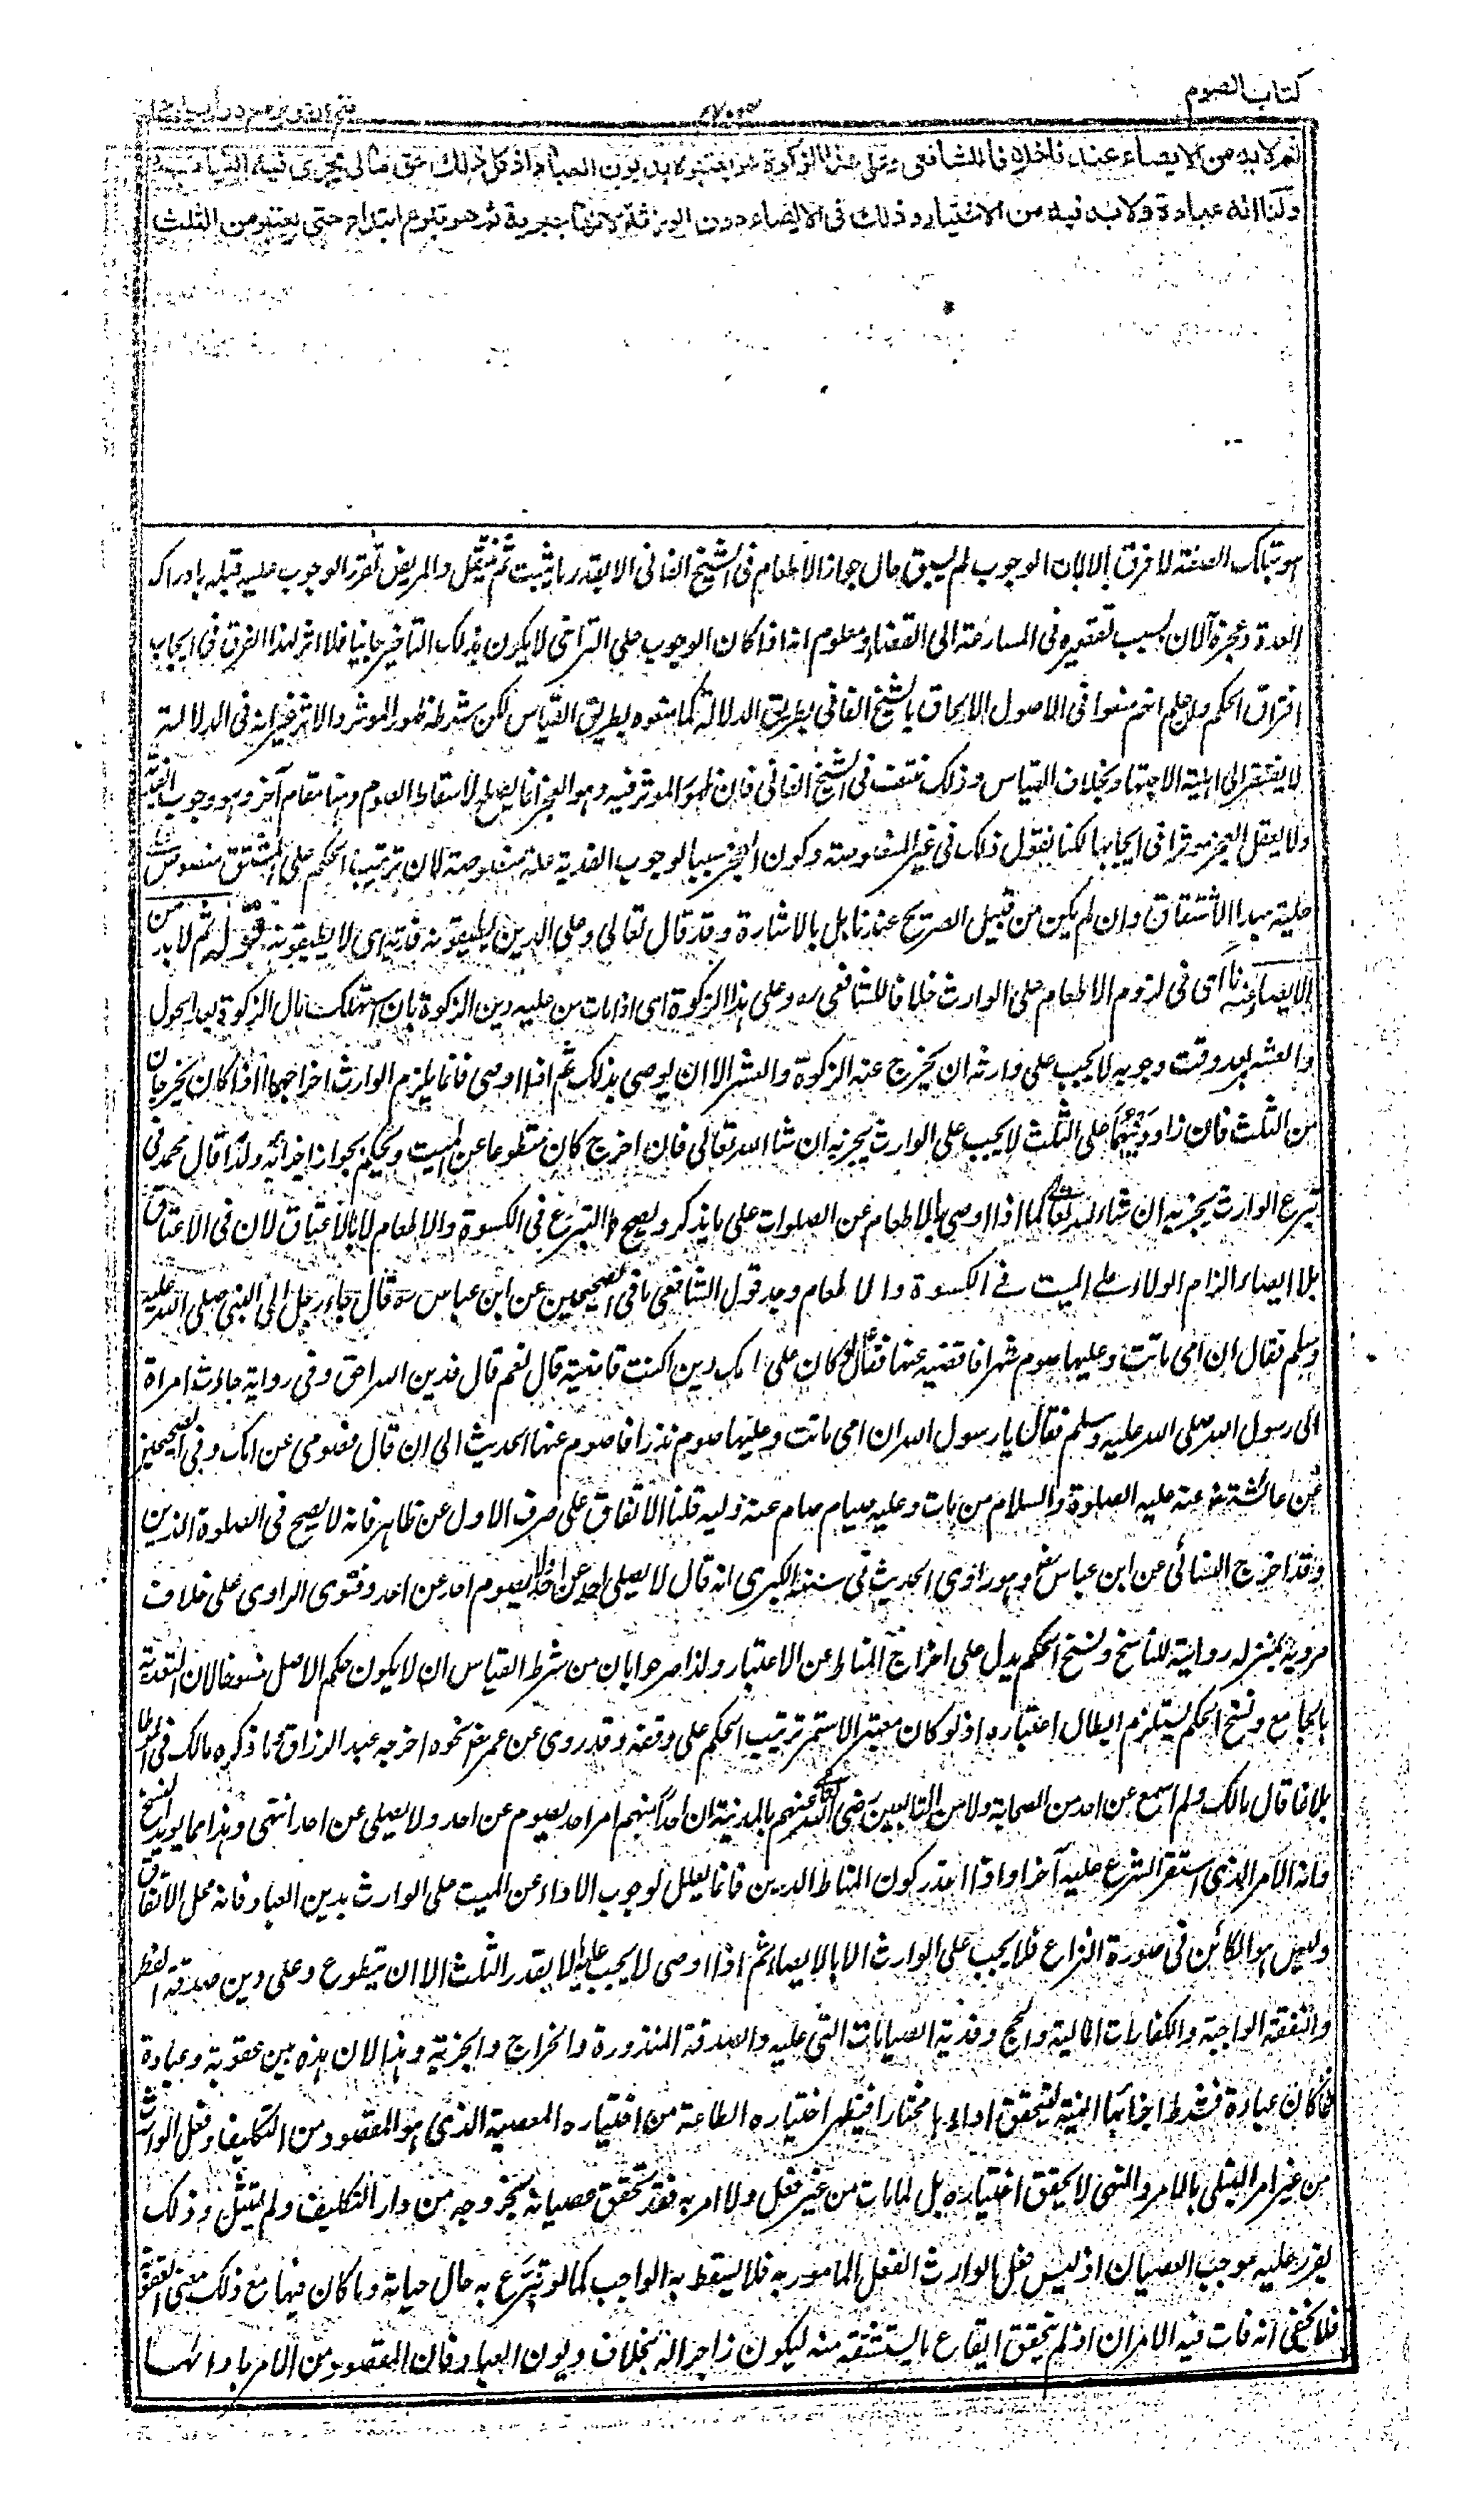 كتاب الصوم
ثم لا بد من الايصاء عندنا خلافا للشافعي وعلى هذا الزكوة هو يعتبره بديون العباد اذ كل ذلك حق مالي يجرى فيه النيابة
ولنا انه عبادة ولا بد فيه من الاختيار وذلك في الايصاء دون الوراثة لانها جبرية ثم هو تبرع ابتداء حتى يعتبر من الثلث
هو بتلك الصفة لا فرق الا بان الوجوب لم يسبق حال جواز الاطعام في الشيخ الفاني الا بقدر ما يثبت ثم ينتقل والمريض تقرر الوجوب عليه قبله بادراك
العدة وعجزه الآن بسبب تقصيره في المسارعة الى القضاء ومعلوم انه اذا كان الوجوب على التراخي لا يكون بذلك التأخير جانيا فلا اثر لهذا الفرق في ايجاب
افتراق الحكم واعلم انهم منعوا في الاصول الالحاق بالشيخ الفاني بطريق الدلالة كما منعوه بطريق القياس لكن شرطه ظهور الموثر والاثر غير انه في الدلالة
لا يفتقر الى اهلية الاجتهاد بخلاف القياس وذلك منتف في الشيخ الفاني فان ظهور الموثر فيه وهو العجز انما يصلح لاسقاط الصوم وهنا مقام آخر وهو وجوب الفدية
ولا يعقل العجز موثرا في ايجابها لكنا نقول ذلك في غير المنصوصة وكون العجز سببا لوجوب الفدية علة منصوصة لان ترتيب الحكم على المشتق نص على
علية مبدأ الاشتقاق وان لم يكن من قبيل الصريح عندنا بل بالاشارة وقد قال تعالى وعلى الذين يطيقونه فدية اى لا يطيقونه قوله ثم لا بد من
الايصاء عندنا اى في لزوم الاطعام على الوارث خلافا للشافعي ره وعلى هذا الزكوة اى اذا مات من عليه دين الزكوة بان استهلك مال الزكوة بعد الحول
والعشر بعد وقت وجوبه لا يجب على وارثه ان يخرج عنه الزكوة والعشر الا ان يوصى بذلك ثم اذا اوصى فانما يلزم الوارث اخراجهما اذا كان يخرجان
من الثلث فان زاد دينهما على الثلث لا يجب على الوارث يجزيه ان شاء الله تعالى فان اخرج كان متطوعا عن الميت ويحكم بجواز اجزائه ولذا قال محمد في
تبرع الوارث يجزيه ان شاء الله تعالى كما اذا اوصى بالاطعام عن الصلوات على ما يذكر ويصح التبرع في الكسوة والاطعام لا بالاعتاق لان في الاعتاق
بلا ايصاء الزام الولاء على الميت في الكسوة والاطعام وجه قول الشافعي ما في الصحيحين عن ابن عباس ره قال جاء رجل الى النبي صلى الله عليه
وسلم فقال ان امي ماتت وعليها صوم شهر افاقضيه عنها فقال لو كان على امك دين اكنت قاضيه قال نعم قال فدين الله احق وفي رواية جاءت امراة
الى رسول الله صلى الله عليه وسلم فقالت يا رسول الله ان امي ماتت وعليها صوم نذر افاصوم عنها الحديث الى ان قال فصومى عن امك وفي الصحيحين
عن عائشة عنه عليه الصلوة والسلام من مات وعليه صيام صام عنه وليه قلنا الاتفاق على صرف الاول عن ظاهره فانه لا يصح في الصلوة الدين
وقد اخرج النسائي عن ابن عباس وهو راوى الحديث في سننه الكبرى انه قال لا يصلي احد عن احد ولا يصوم احد عن احد وفتوى الراوى على خلاف
مرويه بمنزلة روايته للناسخ ونسخ الحكم يدل على اخراج المناط عن الاعتبار ولذا صرحوا بان من شرط القياس ان لا يكون حكم الاصل منسوخا لان التعدية
بالجامع ونسخ الحكم يستلزم ابطال اعتباره اذ لو كان معتبرا لاستمر ترتيب الحكم على وفقه وقد روى عن عمر نحوه اخرجه عبد الرزاق وما ذكره مالك في الموطا
بلاغا قال مالك ولم اسمع عن احد من الصحابة ولا من التابعين رضي الله تعالى عنهم بالمدينة ان احدا منهم امر احدا يصوم عن احد ولا يصلي عن احد انتهى وهذا مما يويد النسخ
وانه الامر الذى استقر الشرع عليه آخرا واذا اهدر كون المناط الدين فانما يعلل لوجوب الاداء عن الميت على الوارث بدين العباد فانه محل الاتفاق
وليس هو الكائن في صورة النزاع فلا يجب على الوارث الا بالايصاء ثم اذا اوصى لا يجب عليه الا بقدر الثلث الا ان يتطوع وعلى دين صدقة الفطر
والنفقة الواجبة والكفارات المالية والحج وفدية الصيامات التي عليه والصدقة المنذورة والخراج والجزية وهذا لان هذه بين عقوبة وعبادة
فما كان عبادة فشرط اجزائها النية ليتحقق اداؤها مختارا فيظهر اختياره الطاعة من اختياره المعصية الذى هو المقصود من التكليف وفعل الوارث
من غير امر المبتلى بالامر والنهي لا يحقق اختياره بل لما مات من غير فعل ولا امر به فقد تحقق عصيانه بخروجه من دار التكليف ولم يمتثل وذلك
يقرر عليه موجب العصيان اذ ليس فعل الوارث الفعل المامور به فلا يسقط به الواجب كما لو تبرع به حال حياته وما كان فيها مع ذلك معنى العقوبة
فلا يخفى انه فات فيه الامران اذ لم يتحقق ايقاع ما يستشقه منه ليكون زاجرا له بخلاف ديون العباد فان المقصود من الامر بادائها